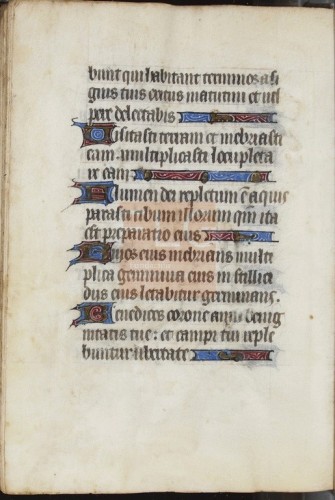 bunt qui habitant terminos a si
gnis tuis exitus matutini et ues
pere delectabis
Uisitasti terram et inebriasti
eam: multiplicasti locupleta
re eam
Flumen dei repletum e aquis
parasti cibum illorum qm ita
est preparatio eius
Riuos eius inebrians multi
plica genimina eius in stillici
dijs eius letabitur germinans.
Benedices corone anni benig
nitatis tue: et campi tui reple
buntur ubertate